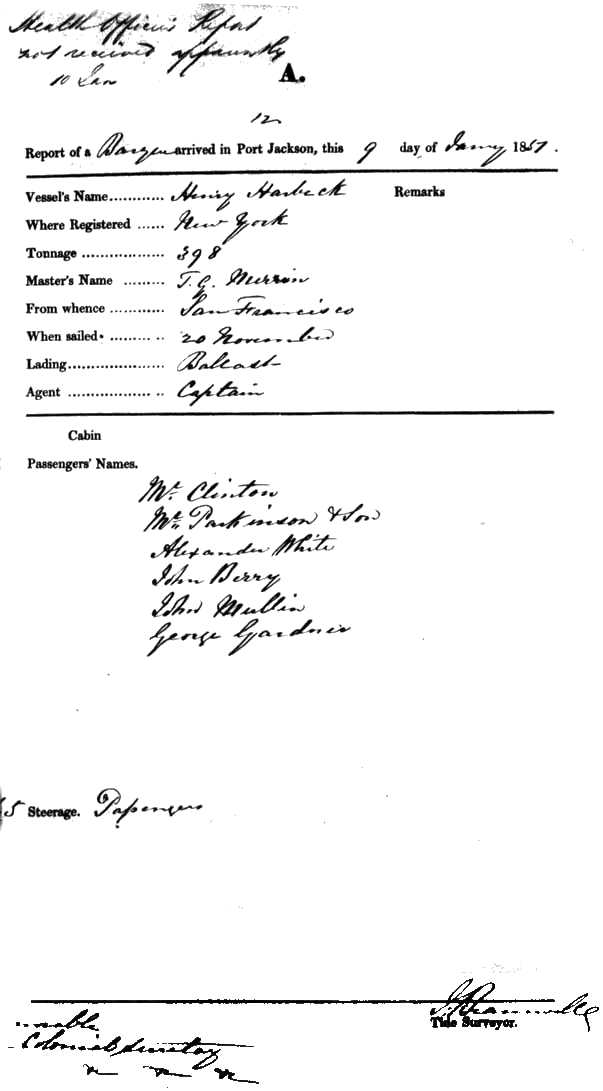 Health Officer's Report
not received apparently
10 Jan
A.
12
Report of a Barque arrived in Port Jackson, this 9 day of Jany 1851.
Vessel's Name............ Henry Harbeck Remarks
Where Registered ...... New York
Tonnage .................. 398
Master's Name ......... T. G. Merrin
From whence ............ San Francisco
When sailed. ......... .. 20 November
Lading..................... Ballast
Agent .................. .. Captain
Cabin
Passengers' Names.
Mr. Clinton
Mr. Parkinson & Son
Alexander White
John Berry
John Mullin
George Gardner
5 Steerage. Passengers
Tide Surveyor.
Colonial Secretary